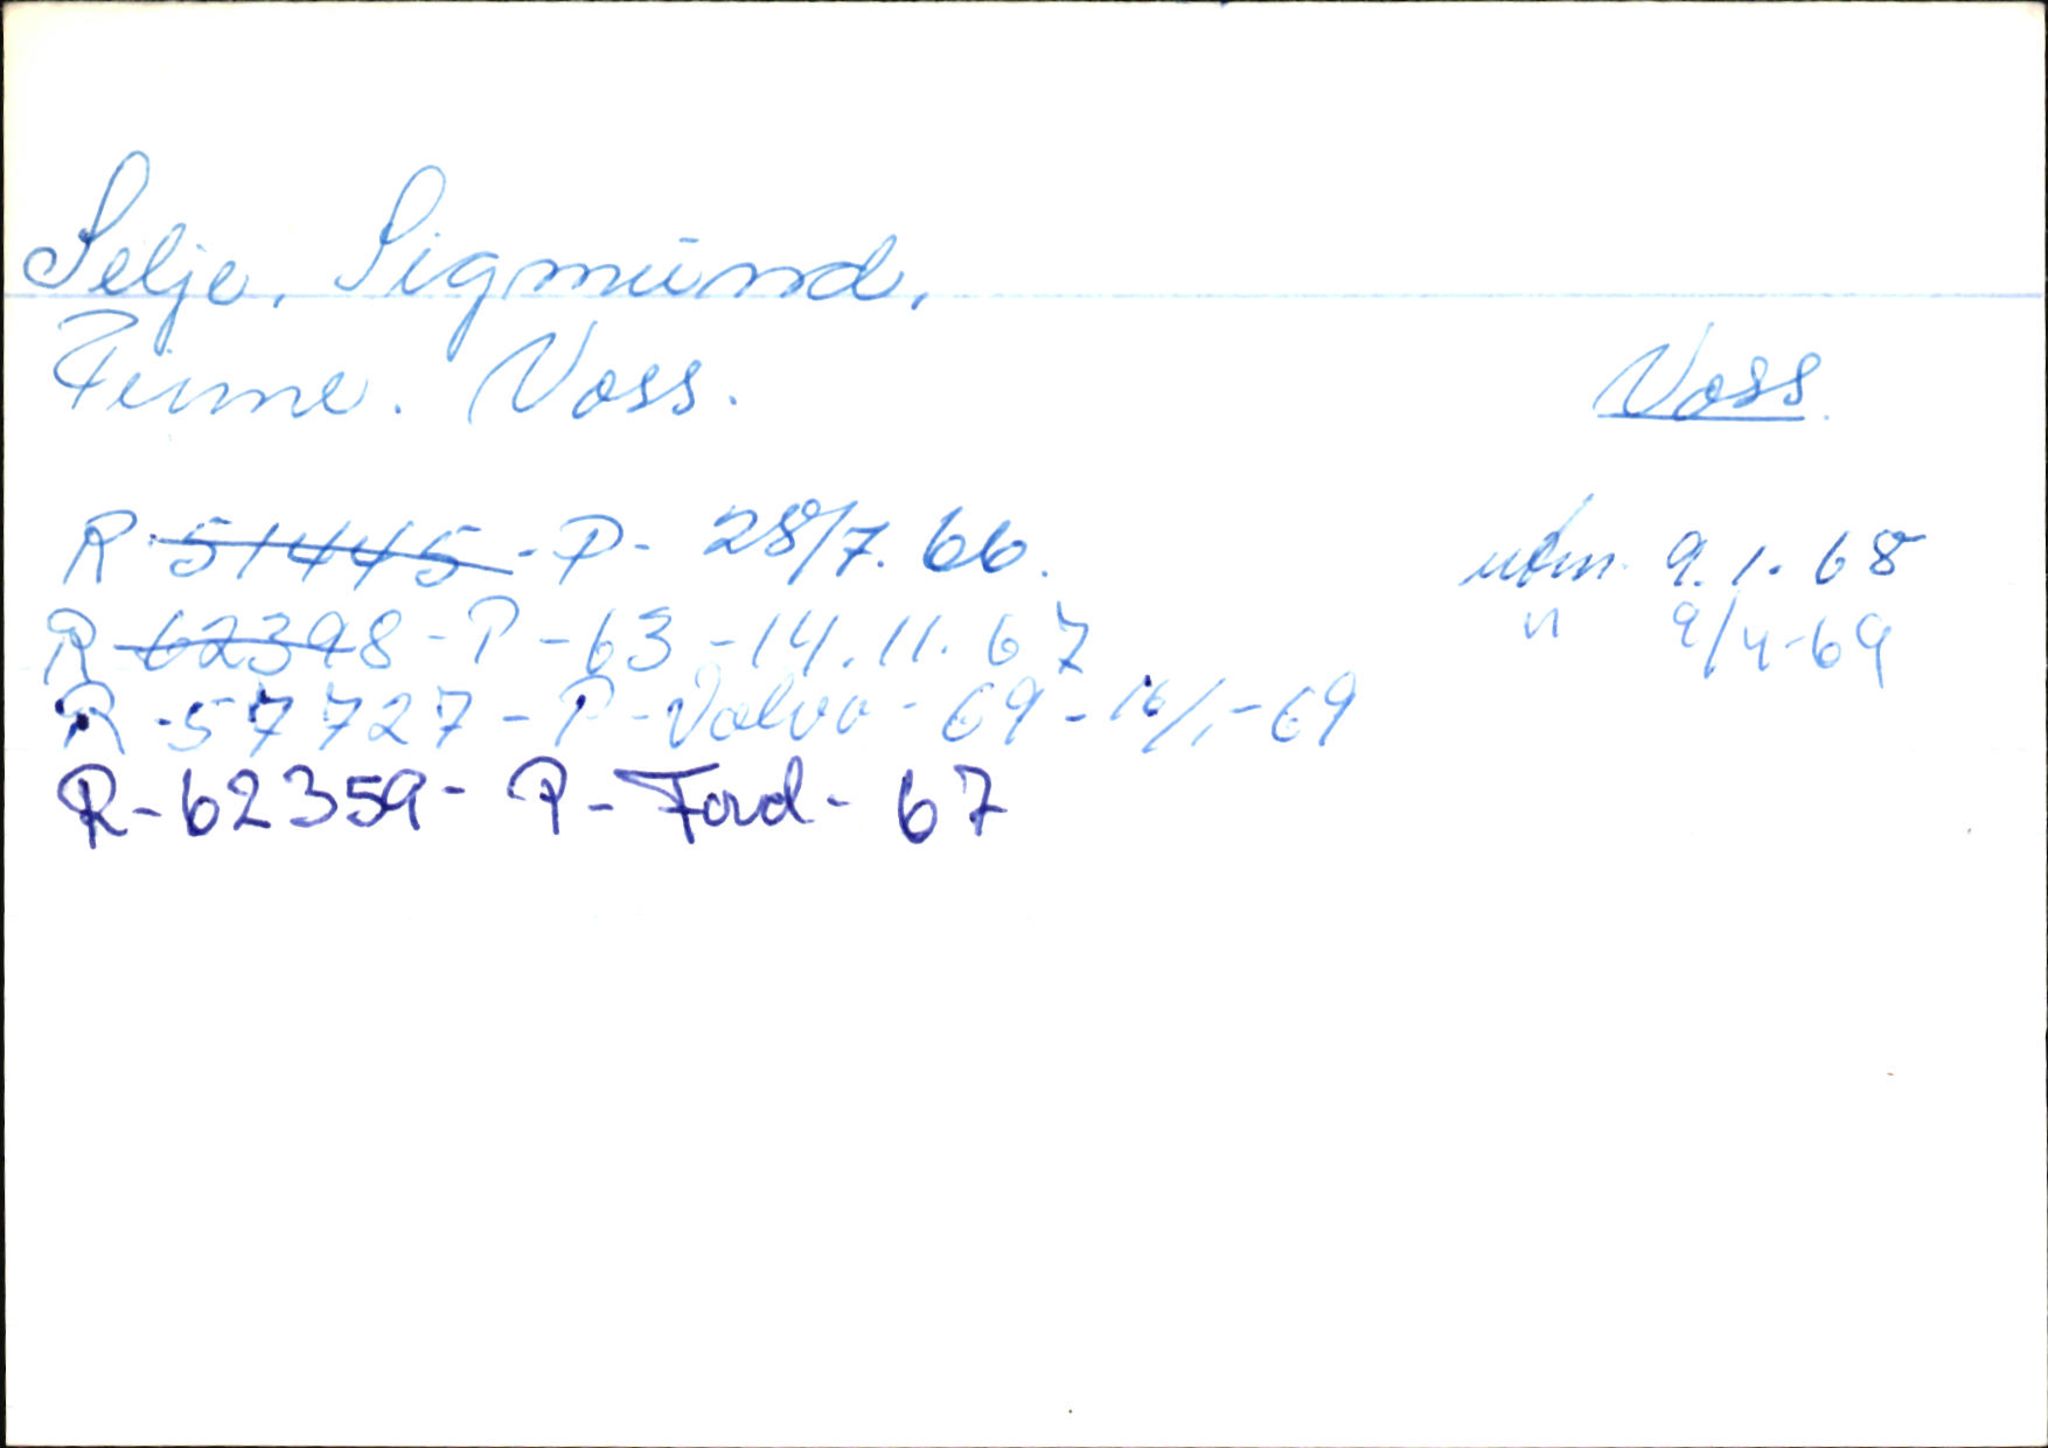 Selje, Sigmund,
Finne. Voss.
Voss.
R-51445-P- 28/7.66.
utm. 9.1.68
R-62398-P-63-14.11.67
" 9/4-69
R-57727-P-Volvo-69-16/1-69
R-62359-P-Ford-67